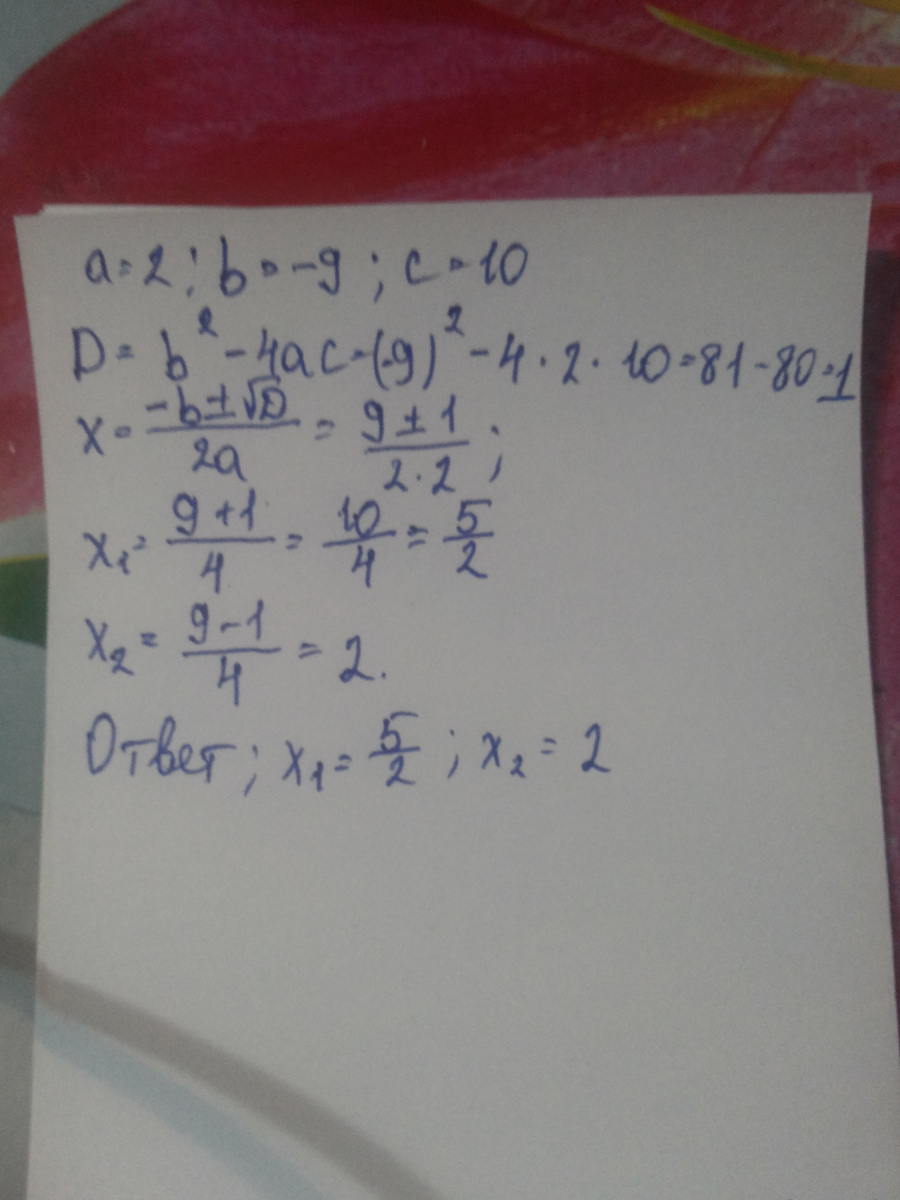 a=2; b=-9; c=10
D= b² - 4ac=(-9)² - 4·2·10=81-80=1
x= (-b±√D)/(2a) = (9±1)/(2·2);
x₁= (9+1)/4 = 10/4 = 5/2
x₂= (9-1)/4 = 2.
Ответ; x₁= 5/2; x₂=2